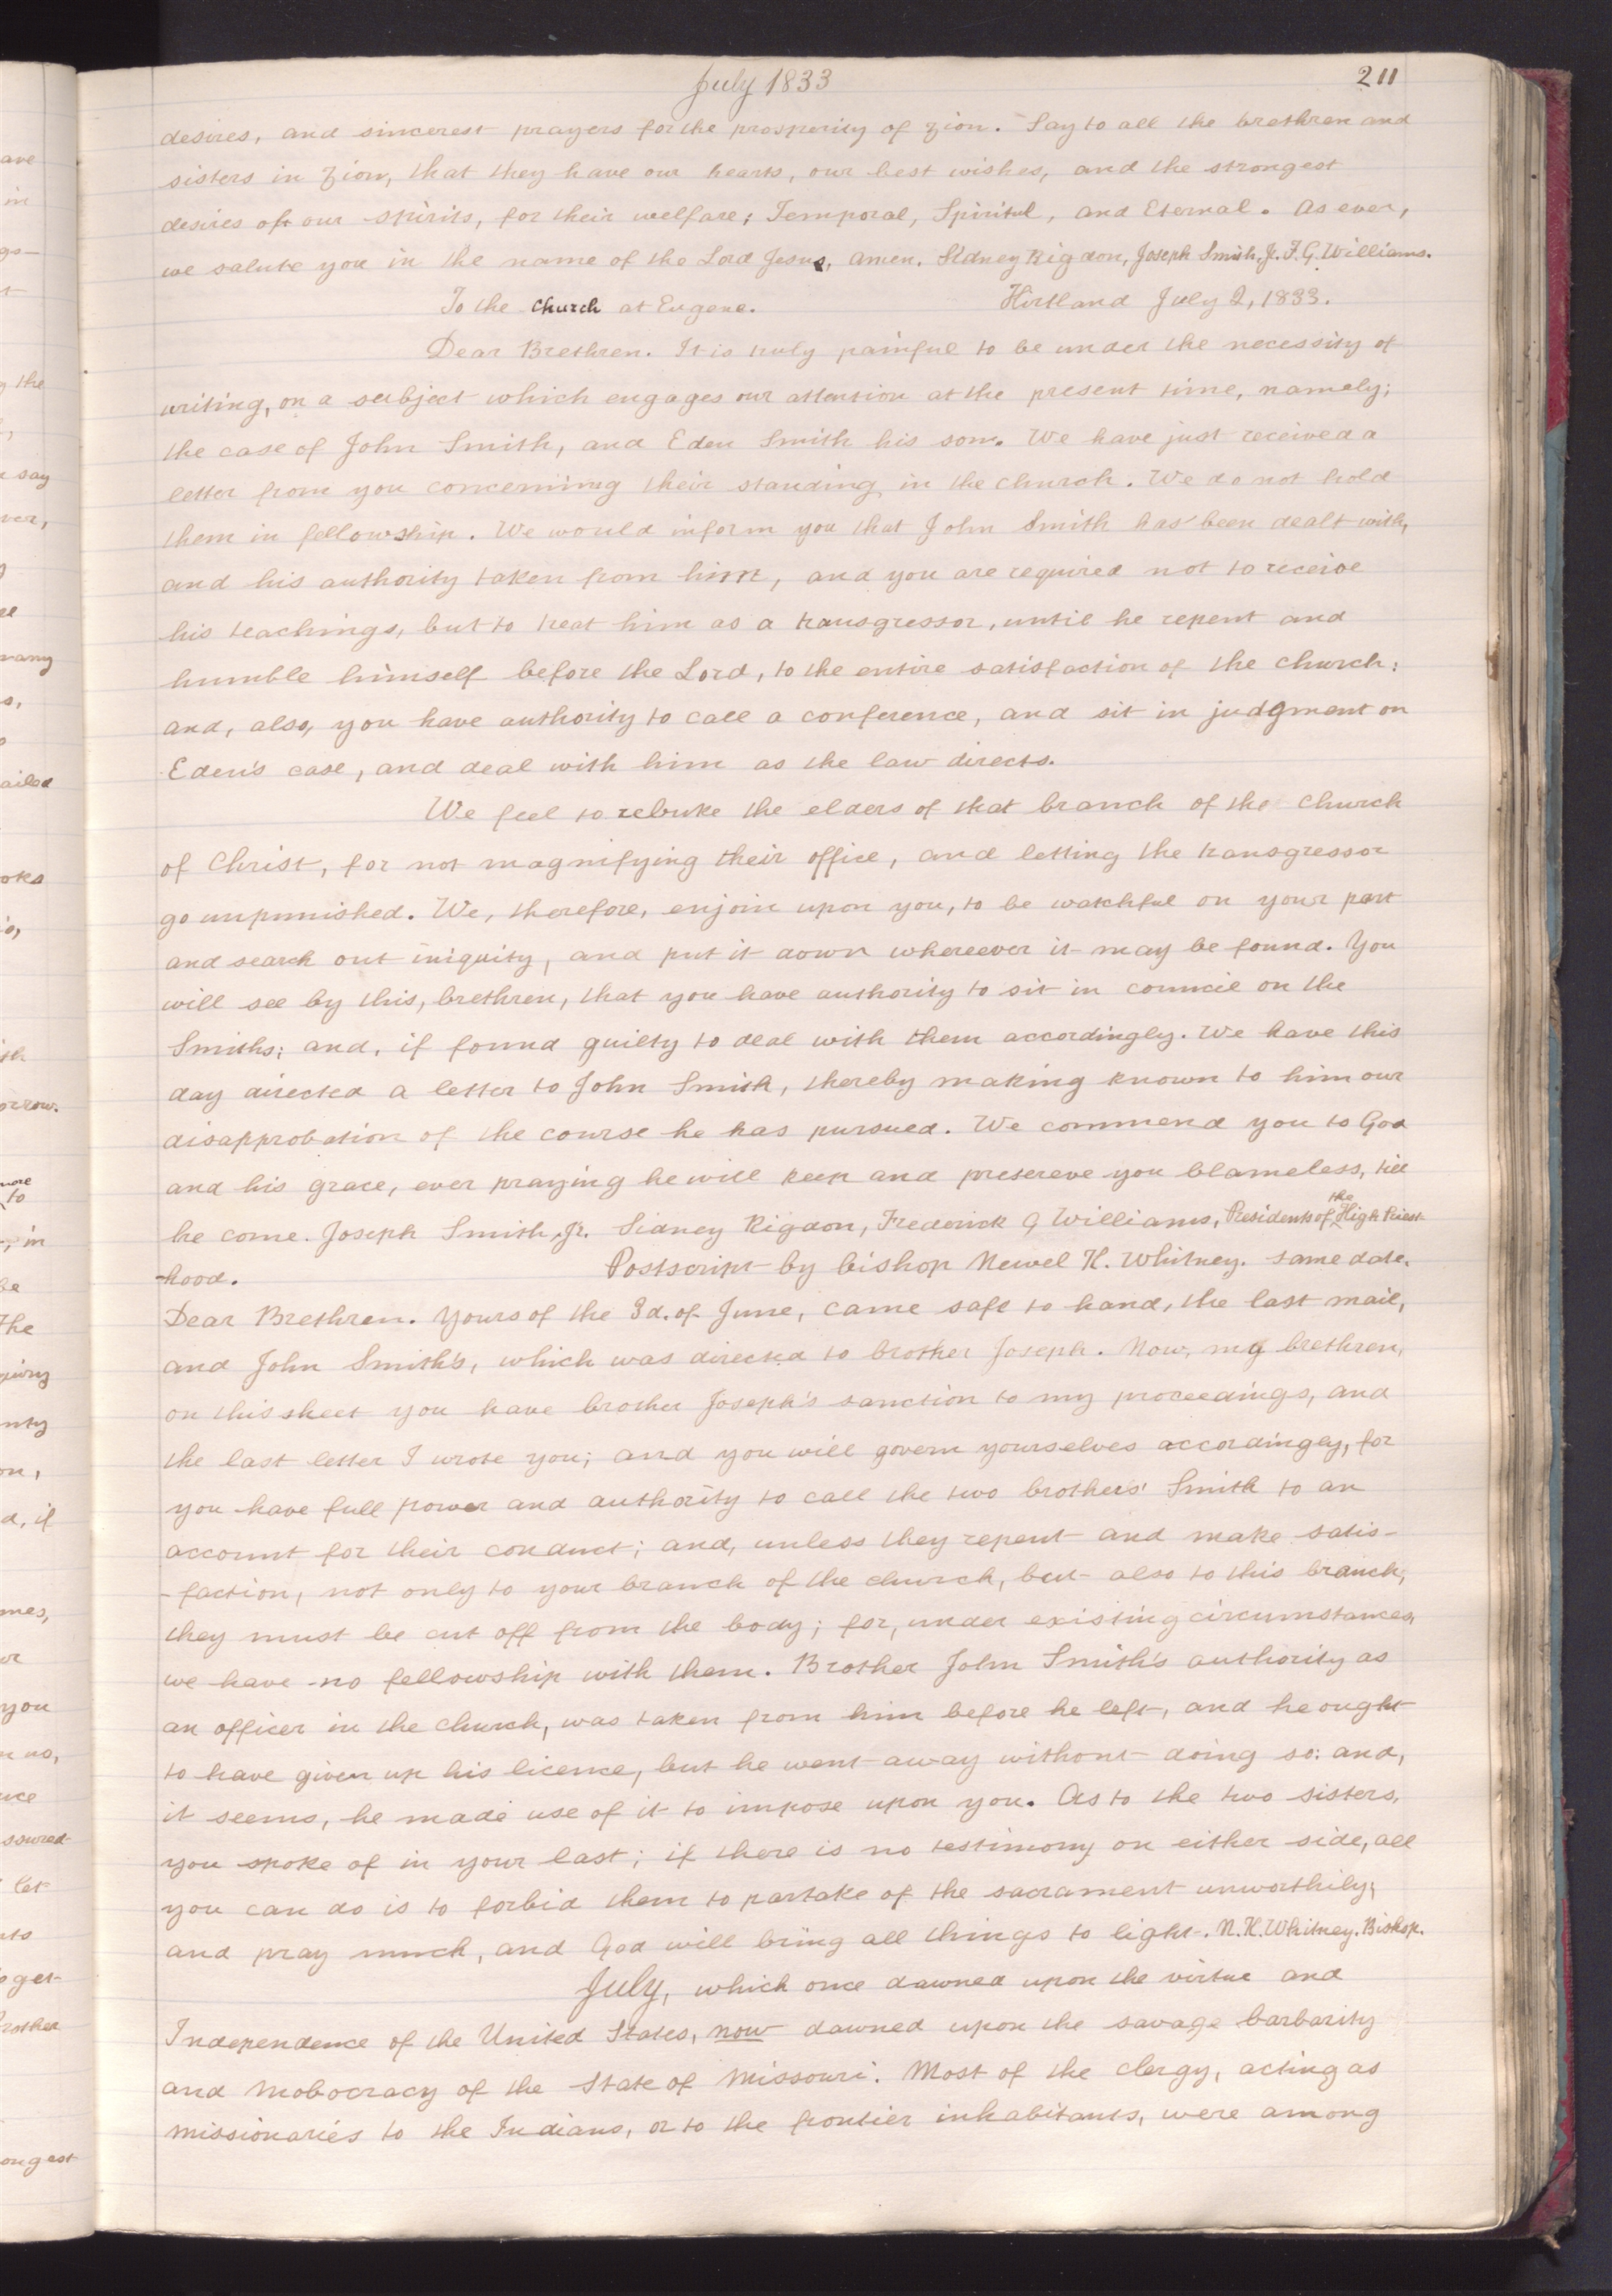 July 1833
211
desires, and sincerest prayers for the prosperity of Zion. Say to all the brethren and
sisters in Zion, that they have our hearts, our best wishes, and the strongest
desires of our spirits, for their welfare; Temporal, Spiritul, and Eternal. As ever,
we salute you in the name of the Lord Jesus, amen. Sidney Rigdon, Joseph Smith, Jr. F. G. Williams.
To the Church at Eugene. Kirtland July 2, 1833.
Dear Brethren. It is truly painful to be under the necessity of
writing, on a subject which engages our attention at the present time, namely;
the case of John Smith, and Eden Smith his son. We have just received a
letter from you concerning their standing in the church. We do not hold
them in fellowship. We would inform you that John Smith has been dealt with,
and his authority taken from him, and you are required not to receive
his teachings, but to treat him as a transgressor, until he repent and
humble himself before the Lord, to the entire satisfaction of the church:
and, also, you have authority to call a conference, and sit in judgment on
Eden's case, and deal with him as the law directs.
We feel to rebuke the elders of that branch of the church
of Christ, for not magnifying their office, and letting the transgressor
go unpunished. We, therefore, enjoin upon you, to be watchful on your part
and search out iniquity, and put it down whereever it may be found. You
will see by this, brethren, that you have authority to sit in council on the
Smiths; and, if found guilty to deal with them accordingly. We have this
day directed a letter to John Smith, thereby making known to him our
disapprobation of the course he has pursued. We commend you to God
and his grace, ever praying he will keep and presereve you blameless, till
he come. Joseph Smith, Jr. Sidney Rigdon, Frederick G Williams, Presidents of the High Priest-
-hood. Postscript by bishop Newel K. Whitney. same date.
Dear Brethren. Yours of the 3d. of June, came safe to hand, the last mail,
and John Smith's, which was directed to brother Joseph. Now, my brethren,
on this sheet you have brother Joseph's sanction to my proceedings, and
the last letter I wrote you; and you will govern yourselves accordingly, for
you have full power and authority to call the two brothers' Smith to an
account for their conduct; and, unless they repent and make satis-
-faction, not only to your branch of the church, but also to this branch,
they must be cut off from the body; for, under existing circumstances,
we have no fellowship with them. Brother John Smith's authority as
an officer in the church, was taken from him before he left, and he ought
to have given up his licence, but he went away without doing so: and,
it seems, he made use of it to impose upon you. As to the two sisters,
you spoke of in your last; if there is no testimony on either side, all
you can do is to forbid them to partake of the sacrament unworthily;
and pray much, and God will bring all things to light. N. K. Whitney. Bishop.
July, which once dawned upon the virtue and
Independence of the United States, now dawned upon the savage barbarity
and mobocracy of the State of Missouri. Most of the clergy, acting as
missionaries to the Indians, or to the frontier inhabitants, were among